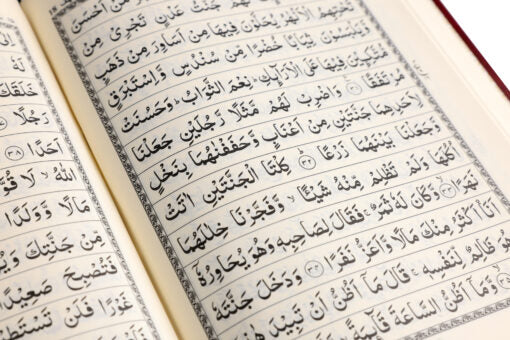 مَنْ اَحْسَنَ
لَهُمْ جَنّٰتُ عَدْنٍ تَجْرِيْ مِنْ
تَحْتِهِمُ الْاَنْهٰرُ يُحَلَّوْنَ فِيْهَا مِنْ اَسَاوِرَ مِنْ ذَهَبٍ
وَّيَلْبَسُوْنَ ثِيَابًا خُضْرًا مِّنْ سُنْدُسٍ وَّاِسْتَبْرَقٍ
مُّتَّكِـِٕيْنَ فِيْهَا عَلَى الْاَرَآئِكِ نِعْمَ الثَّوَابُ وَحَسُنَتْ
مُرْتَفَقًا ٣١ وَاضْرِبْ لَهُمْ مَّثَلًا رَّجُلَيْنِ جَعَلْنَا
لِاَحَدِهِمَا جَنَّتَيْنِ مِنْ اَعْنَابٍ وَّحَفَفْنٰهُمَا بِنَخْلٍ
وَّجَعَلْنَا بَيْنَهُمَا زَرْعًا ٣٢ كِلْتَا الْجَنَّتَيْنِ اٰتَتْ
اُكُلَهَا وَلَمْ تَظْلِمْ مِّنْهُ شَيْئًا وَّفَجَّرْنَا خِلٰلَهُمَا
نَهَرًا ٣٣ وَّكَانَ لَهٗ ثَمَرٌ فَقَالَ لِصَاحِبِهٖ وَهُوَ يُحَاوِرُهٗٓ
اَنَا اَكْثَرُ مِنْكَ مَالًا وَّاَعَزُّ نَفَرًا ٣٤ وَدَخَلَ جَنَّتَهٗ
وَهُوَ ظَالِمٌ لِّنَفْسِهٖ قَالَ مَآ اَظُنُّ اَنْ تَبِيْدَ هٰذِهٖٓ
٣٥ وَّمَآ اَظُنُّ السَّاعَةَ قَآئِمَةً
لَهٗ
خَلَقَكَ
رَجُلًا
اَحَدًا ٣٨
اللّٰهُ لَا قُوَّةَ
مَالًا وَّوَلَدًا
مِّنْ جَنَّتِكَ
فَتُصْبِحَ صَعِيْدًا
غَوْرًا فَلَنْ